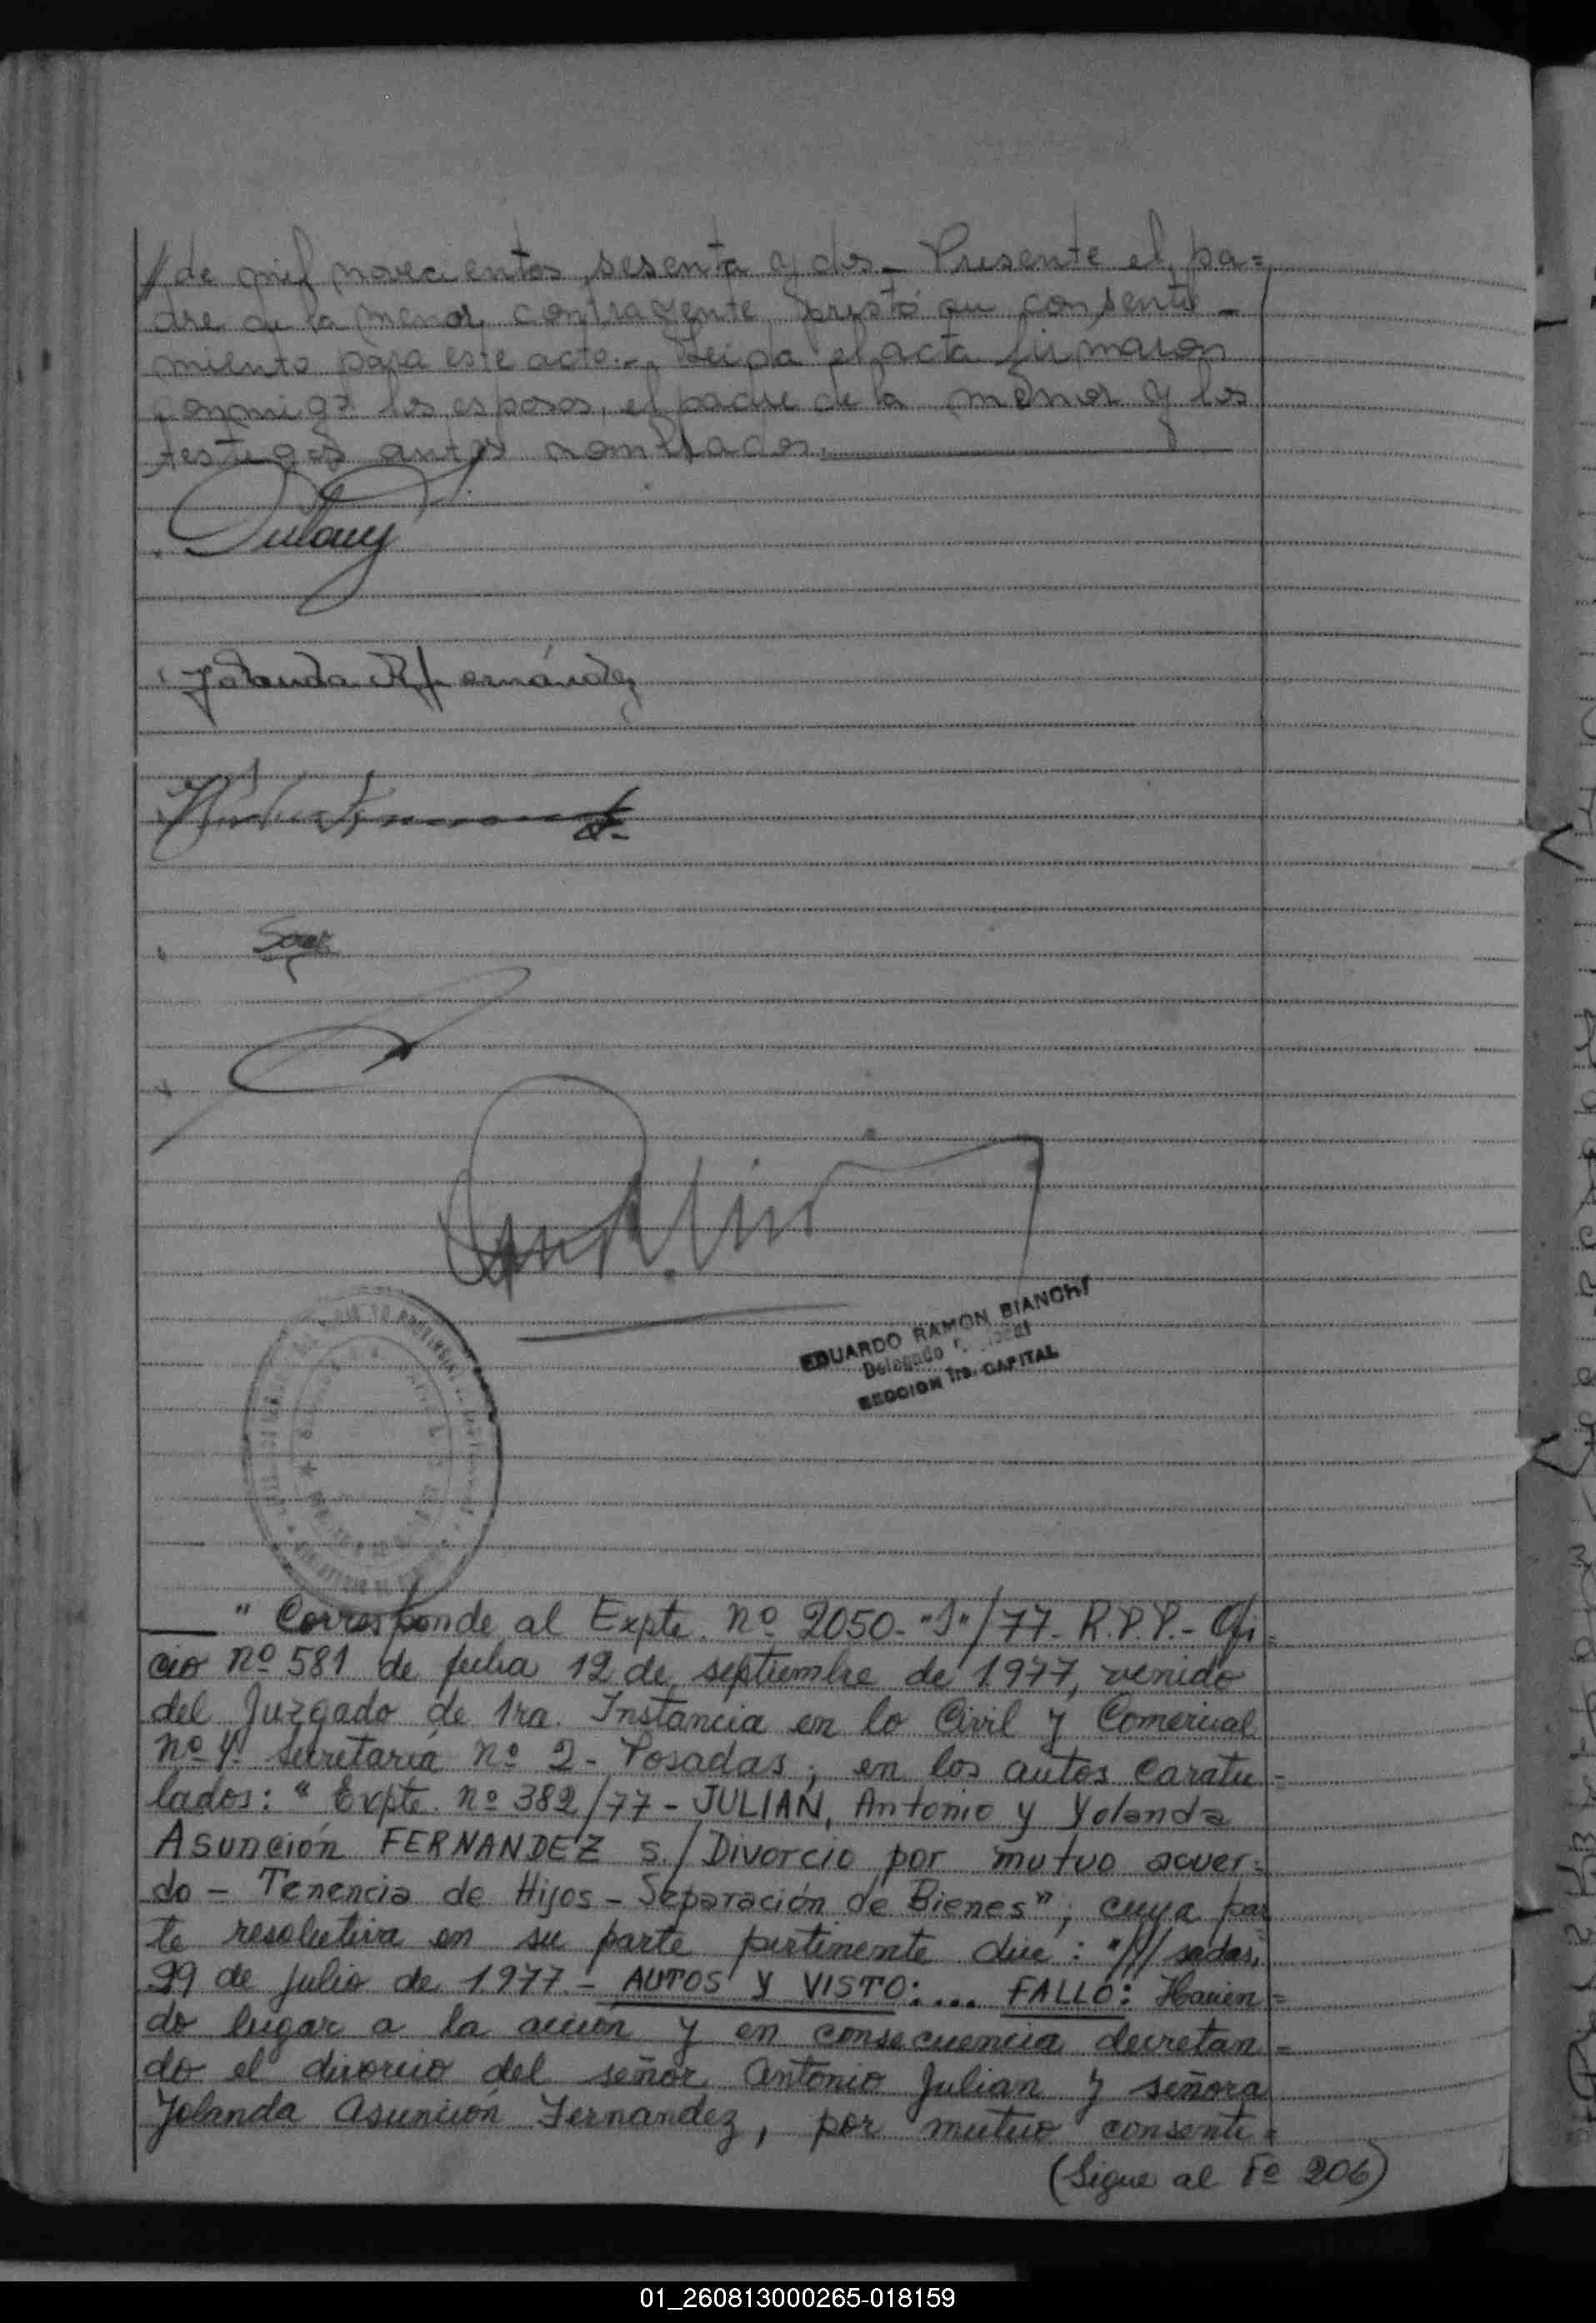 // de mil novecientos sesenta y dos.- Presente el pa=
dre de la menor contrayente prestó su consenti-
miento para este acto.- Leida el acta firmaron
conmigo los esposos, el padre de la menor y los
testigos antes nombrados.
Yolanda A Fernández
EDUARDO RAMON BIANCHI
Delegado
SECCION 1ra. CAPITAL
" Corresponde al Expte. nº 2050-"J"/77- R.P.P.- Ofi=
cio nº 581 de fecha 12 de septiembre de 1977, venido
del Juzgado de 1ra. Instancia en lo Civil y Comercial
nº 4 secretaría nº 2- Posadas, en los autos caratu=
lados: " Expte. nº 382/77- JULIAN, Antonio y Yolanda
Asunción FERNANDEZ s./Divorcio por mutuo acuer=
do - Tenencia de Hijos - Separación de Bienes"; cuya par
te resolutiva en su parte pertinente dice: "///sadas,
29 de julio de 1.977.- AUTOS Y VISTO:.... FALLO: Hacien=
do lugar a la acción y en consecuencia decretan=
do el divorcio del señor Antonio Julian y señora
Yolanda Asunción Fernandez, por mutuo consenti=
(Sigue al Fº 206)
01_260813000265-018159